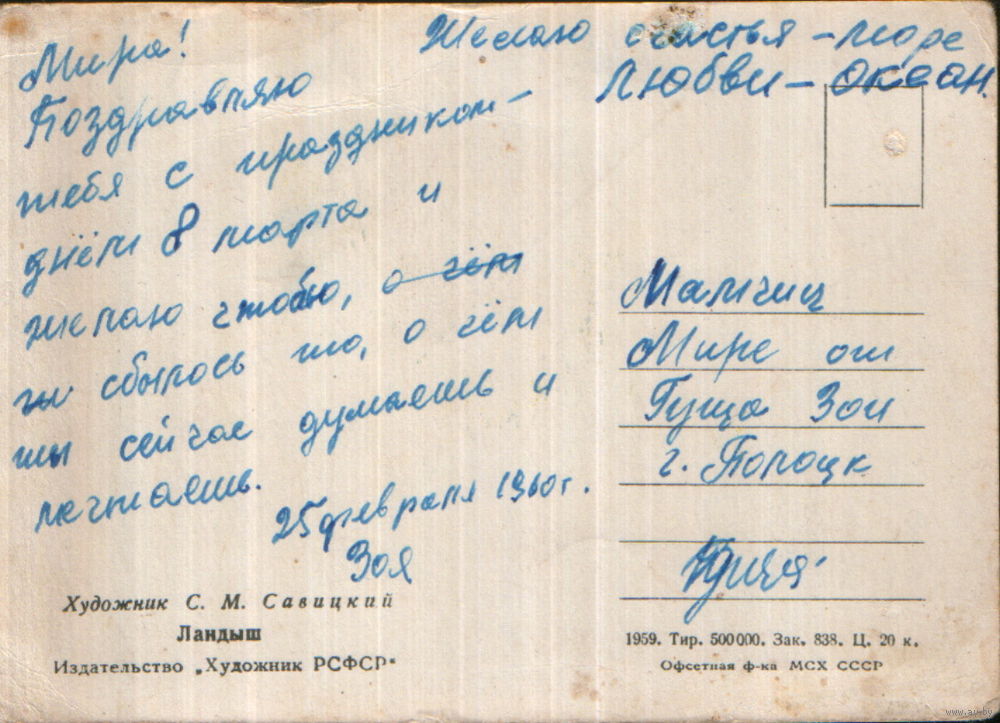 Мира!
Поздравляю
тебя с праздником –
днём 8 марта и
желаю чтобы, о чём
ты сбылось то, о чём
ты сейчас думаешь и
мечтаешь.
25 февраля 1960 г.
Зоя
Желаю счастья – море
Любви – океан.
Мамчиц
Мире от
Гуща Зои
г. Полоцк
Гуща
Художник С. М. Савицкий
Ландыш
Издательство „Художник РСФСР"
1959. Тир. 500 000. Зак. 838. Ц. 20 к.
Офсетная ф-ка МСХ СССР
www.ay.by